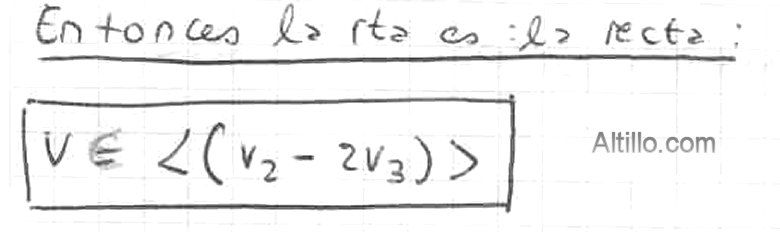 Entonces la rta es : la recta :
V ∈ <(v₂ - 2v₃)>
Altillo.com